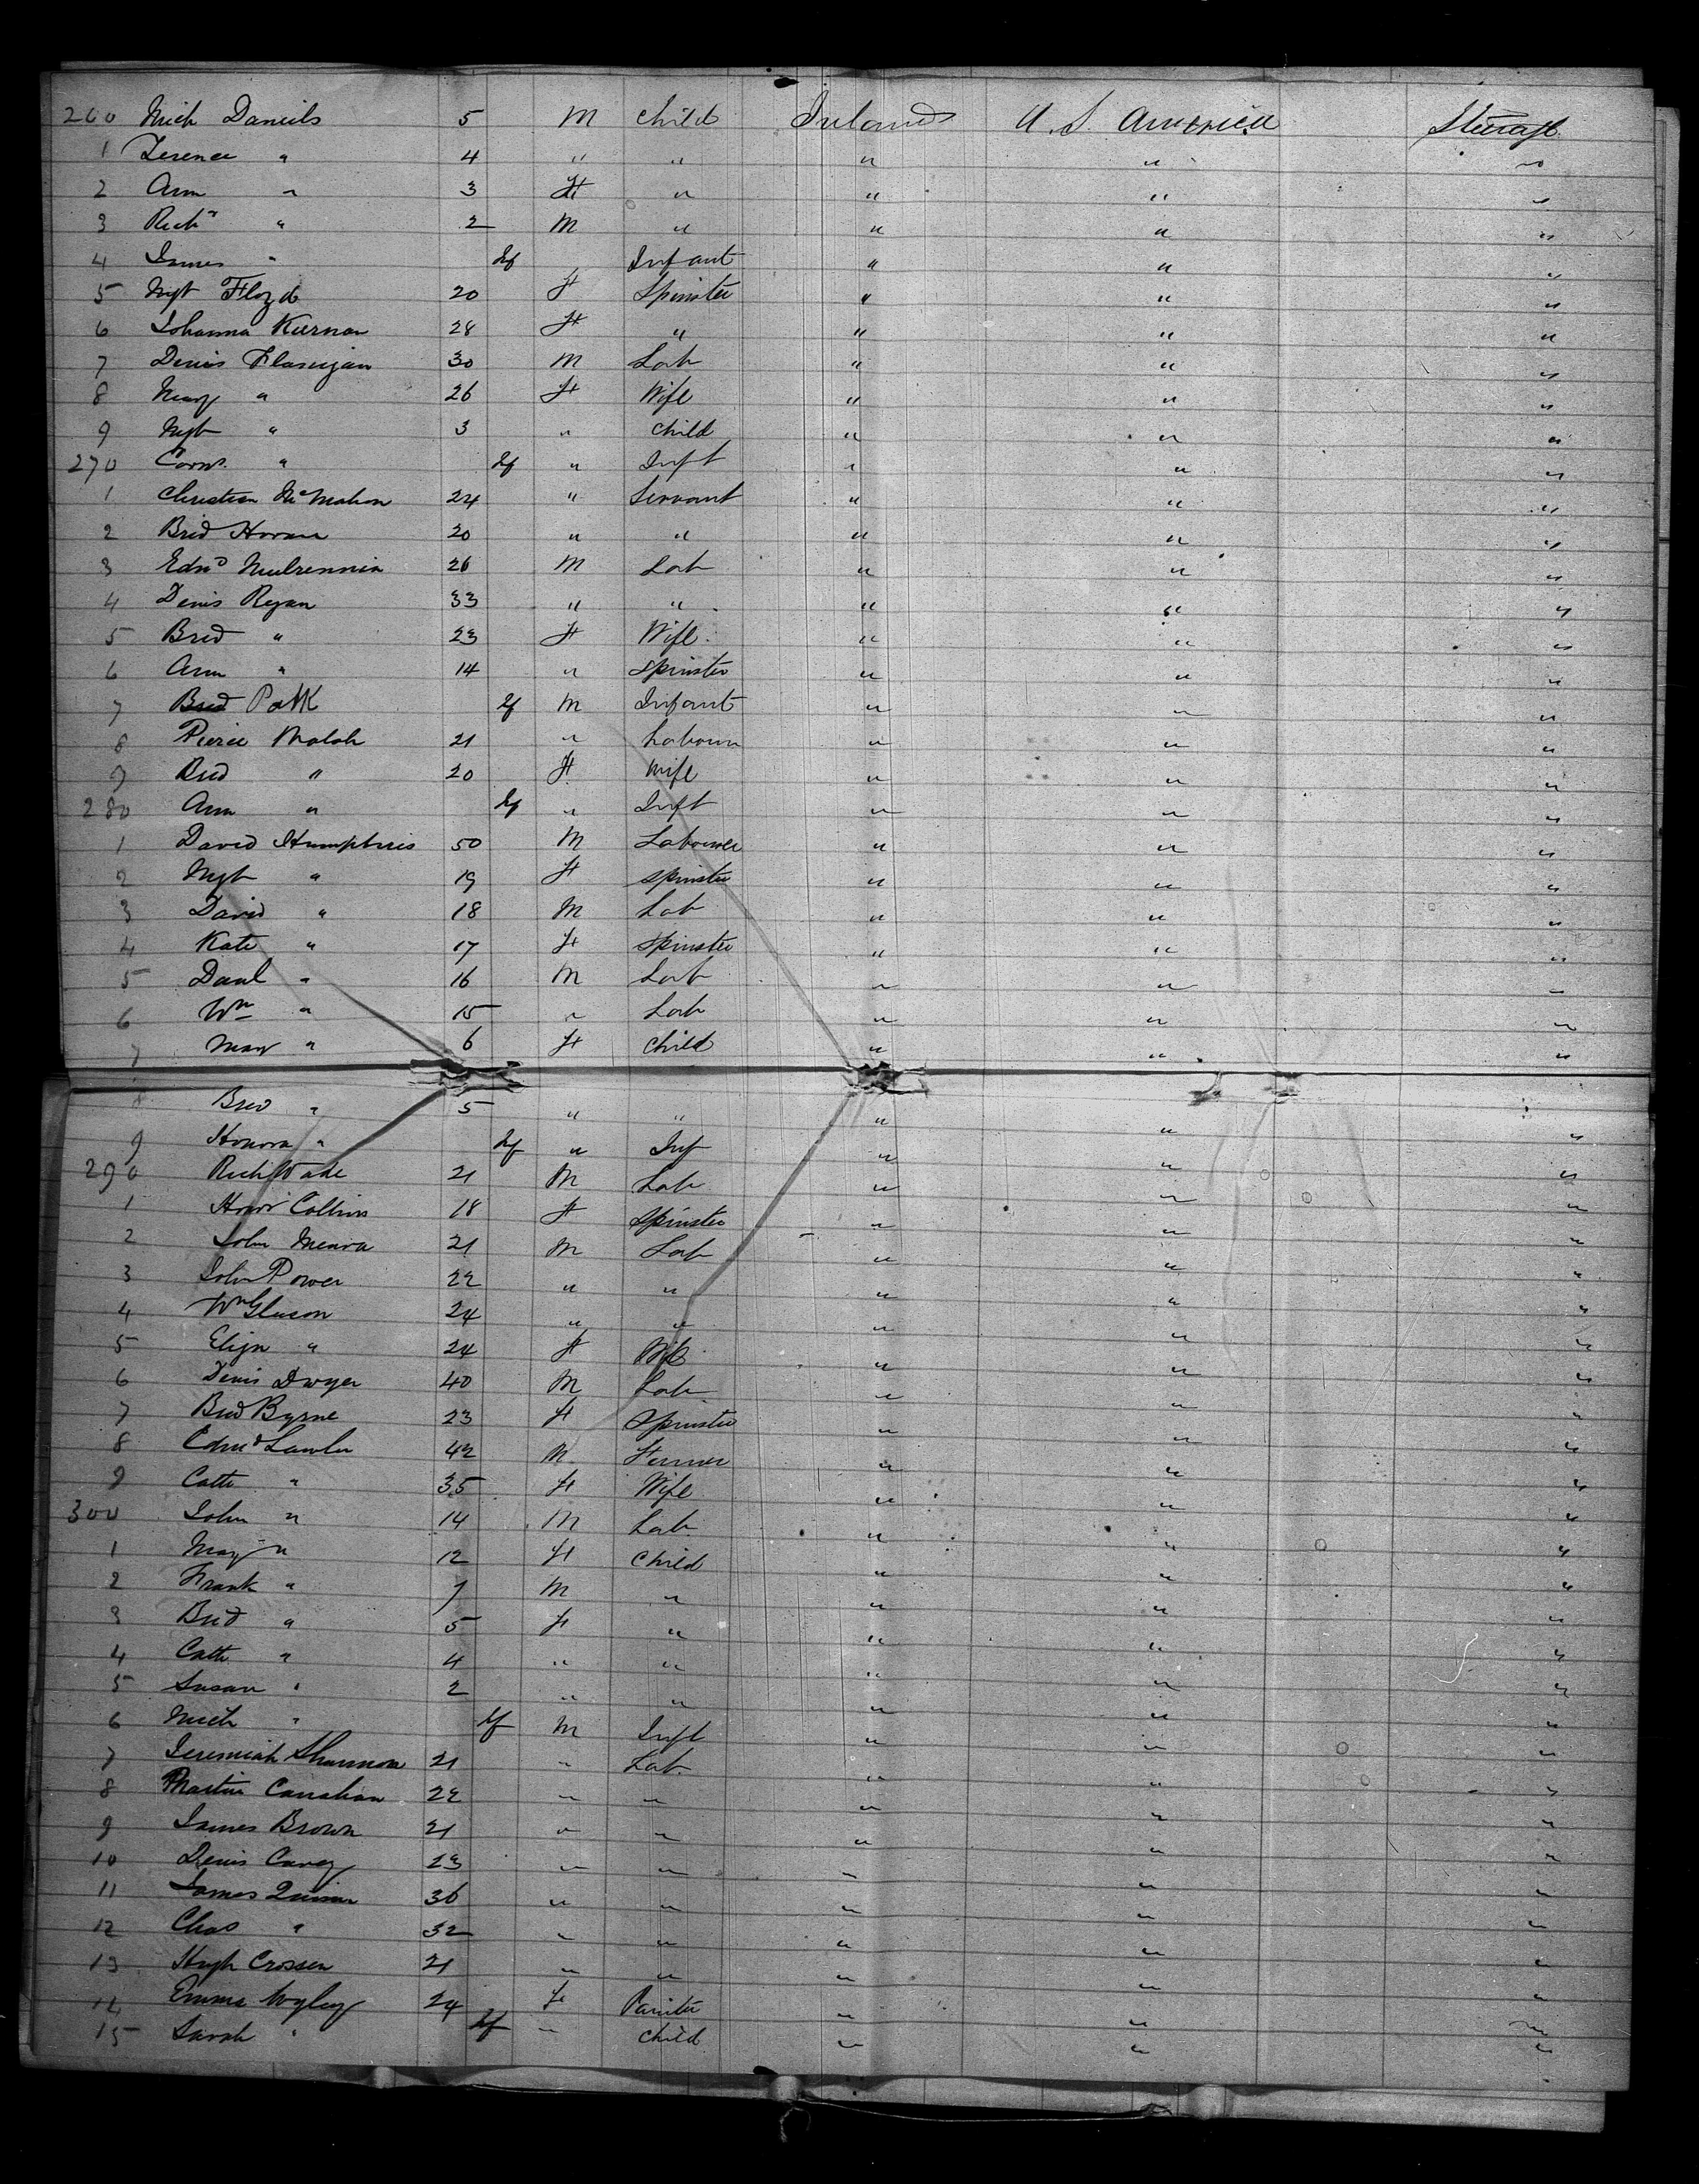 260 Mich Daniels 5 M Child Ireland U. S. America Steerage
1 Terence " 4 " " " " "
2 Ann " 3 F " " " "
3 Richd " 2 M " " " "
4 James " Inf Infant " " "
5 Mgt Floyd 20 F Spinster " " "
6 Johanna Kiernan 28 F " " " "
7 Denis Flanigan 30 M Lab " " "
8 Mary " 26 F Wife " " "
9 Mgt " 3 " Child " " "
270 " Inf " Inft " " "
1 Christian McMahon 24 " Servant " " "
2 Brid 20 " " " " "
3 Edmd Mulrennin 26 M Lab " " "
4 Denis Ryan 33 " " " " "
5 Brid " 23 F Wife " " "
6 Ann " 14 " Spinster " " "
7 Brid PatK Inf M Infant " " "
8 Pierce Walsh 21 " Labourer " " "
9 Brid " 20 F Wife " " "
280 Ann " Inf " Inft " " "
1 David Humphries 50 M Labourer " " "
2 Mgt " 19 F Spinster " " "
3 David " 18 M Lab " " "
4 Kate " 17 F Spinster " " "
5 Danl " 16 M Lab " " "
6 Wm " 15 " Lab " " "
7 Mary " 6 F Child " " "
8 Brid " 5 " " " " "
9 Honora " Inf " Inf " " "
290 Rich Wade 21 M Lab " " "
1 Honr Collins 18 F Spinster " " "
2 John Meara 21 M Lab " " "
3 John Power 22 " " " " "
4 Wm Gleeson 24 " " " " "
5 Eliza " 24 F Wife " " "
6 Denis Dwyer 40 M Lab " " "
7 Brid Byrne 23 F Spinster " " "
8 Edmd Lawler 42 M Farmer " " "
9 Cath " 35 F Wife " " "
300 John " 14 M Lab " " "
1 Mary " 12 F Child " " "
2 Frank " 7 M " " " "
3 Brid " 5 F " " " "
4 Cath " 4 " " " " "
5 Susan " 2 " " " " "
6 Mich " Inf M Inft " " "
7 Jeremiah Shannon 21 " Lab " " "
8 Martin 22 " " " " "
9 James Brown 21 " " " " "
10 Denis Carey 23 " " " " "
11 James Quinn 36 " " " " "
12 Chas " 32 " " " " "
13 Hugh Crossen 21 " " " " "
14 Emma Wyley 24 F " " "
15 Sarah " Inf " Child " " "